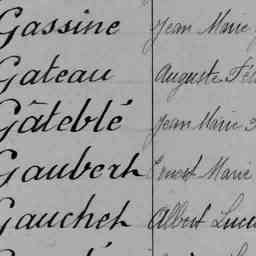 Gassine Jean Marie
Gateau Auguste
Gâteblé Jean Marie
Gaubert Ernest Marie
Gauchet Albert